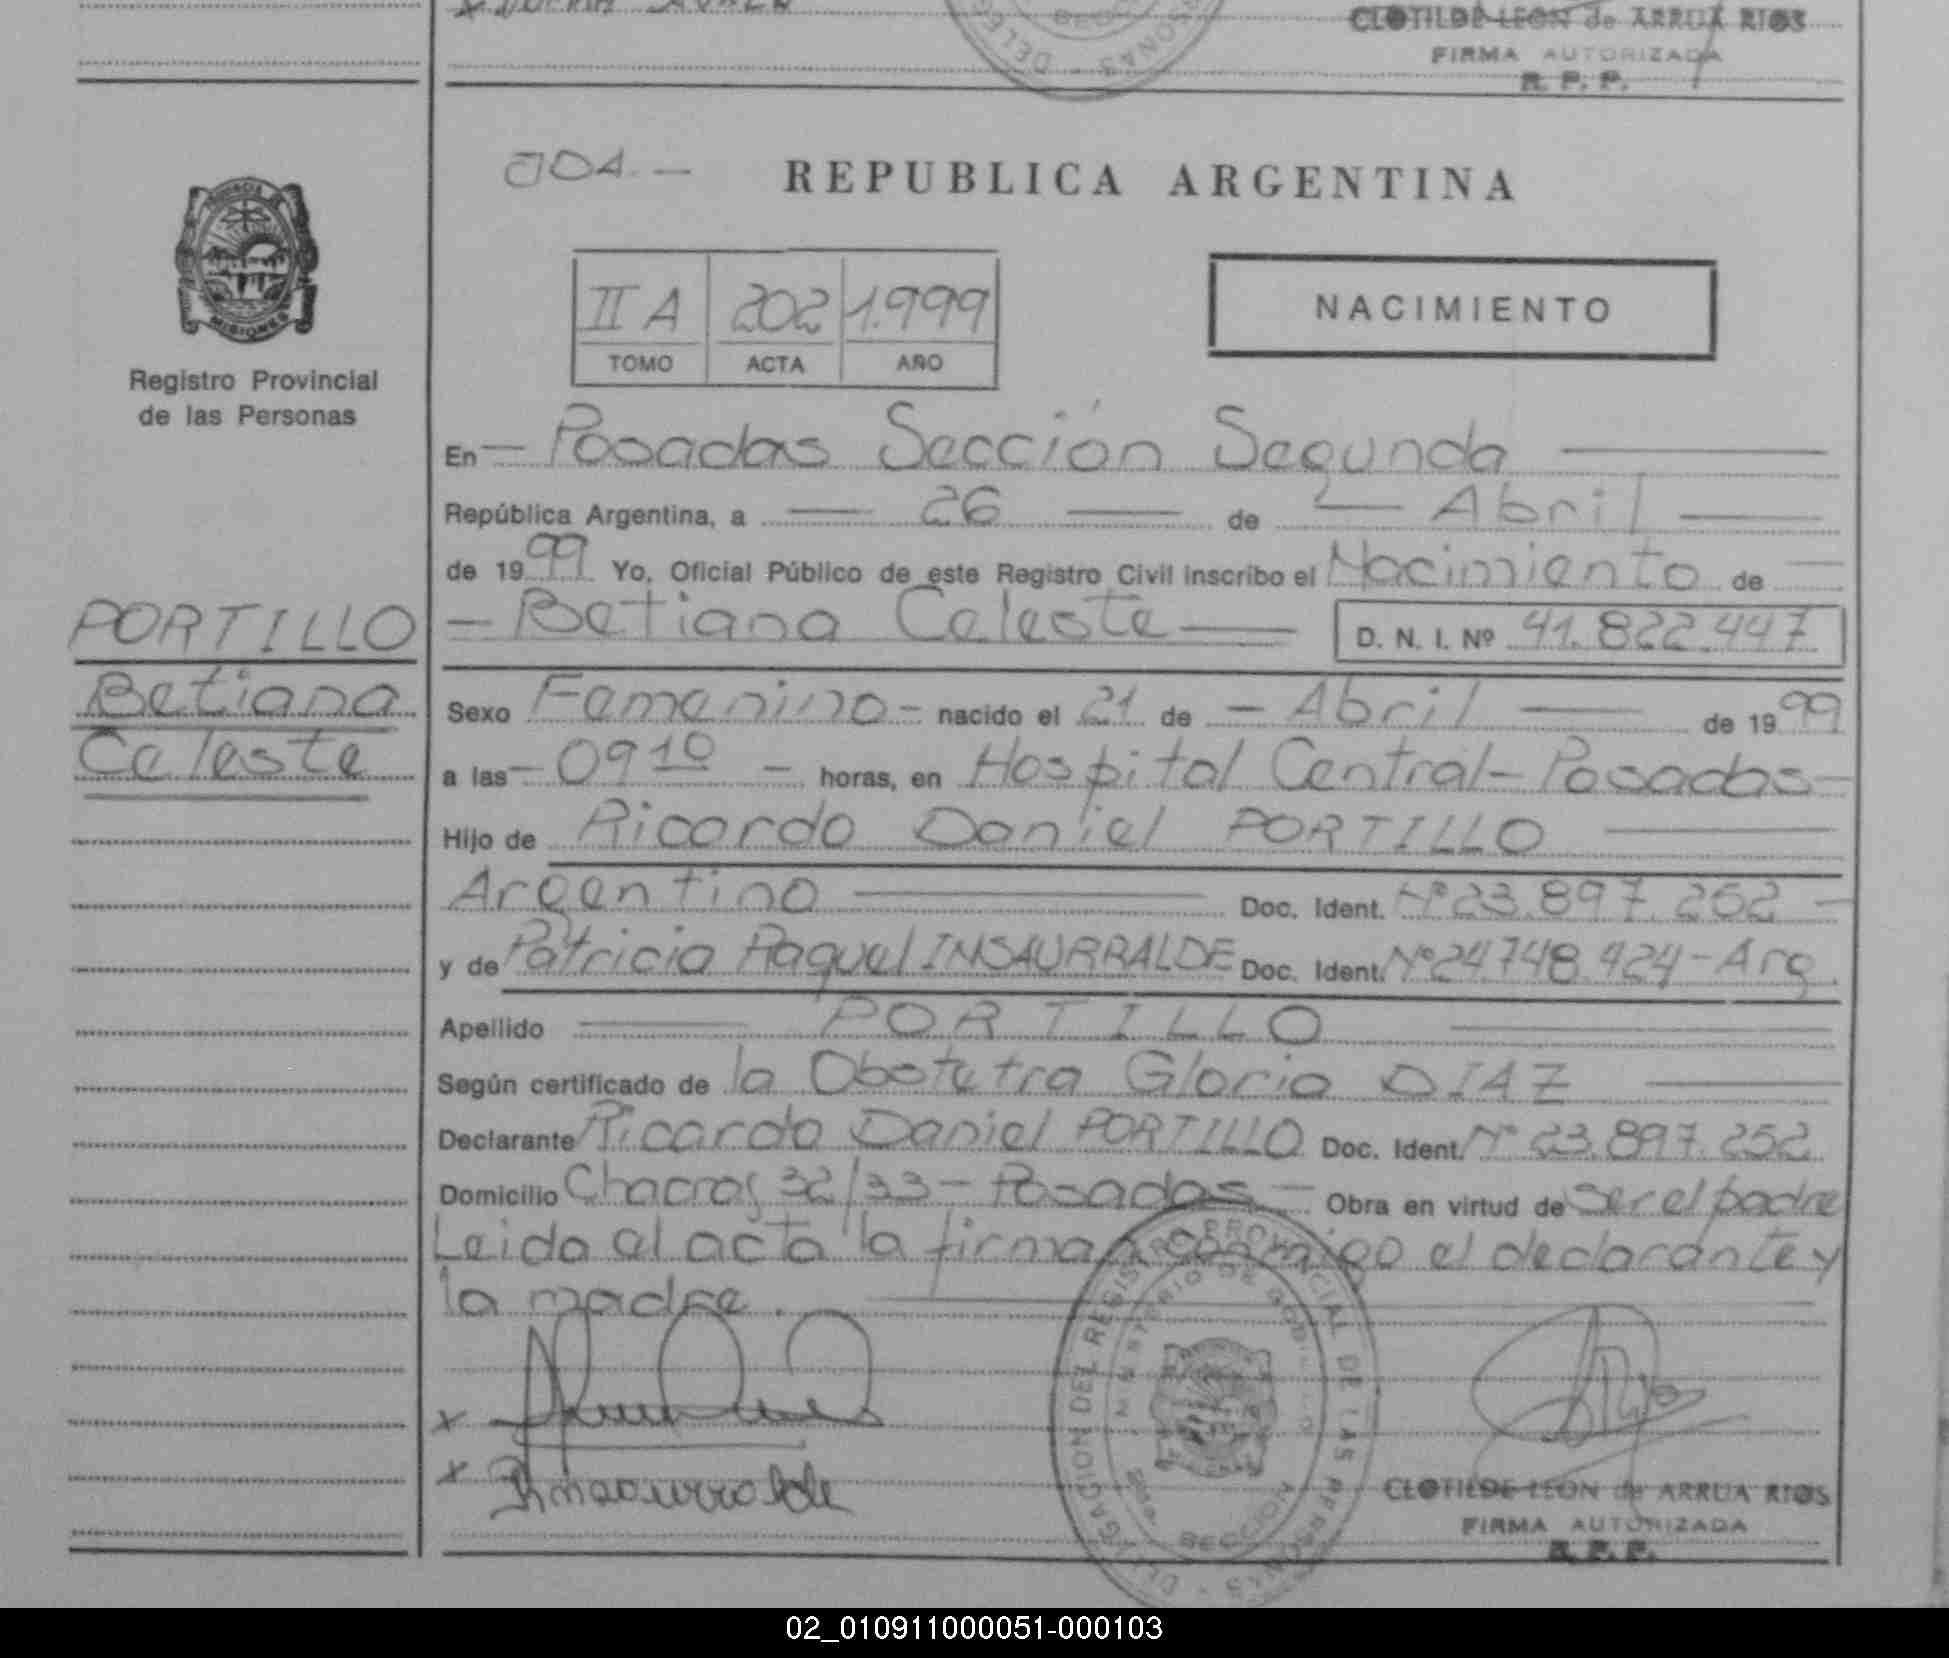 CLOTILDE LEON de ARRUA RIOS
FIRMA AUTORIZADA
R. P. P.
REPUBLICA ARGENTINA
II A 202 1.999
TOMO ACTA AÑO
NACIMIENTO
MISIONES
Registro Provincial
de las Personas
En — Posadas Sección Segunda —
República Argentina, a — 26 — de — Abril —
de 1999 Yo, Oficial Público de este Registro Civil inscribo el Nacimiento de —
— Betiana Celeste — D. N. I. Nº 41.822.447
PORTILLO
Betiana
Celeste
Sexo Femenino - nacido el 21 de — Abril — de 1999
a las - 09 10 - horas, en Hospital Central - Posadas -
Hijo de Ricardo Daniel PORTILLO —
Argentino — Doc. Ident. Nº 23.897.252 —
y de Patricia Raquel INSAURRALDE Doc. Ident. Nº 24.748.424 - Arg.
Apellido — PORTILLO —
Según certificado de la Obstetra Gloria DIAZ —
Declarante Ricardo Daniel PORTILLO Doc. Ident. Nº 23.897.252
Domicilio Chacras 32/33 - Posadas - Obra en virtud de Ser el padre
Leida el acta la firman conmigo el declarante y
la madre. —
DELEGACION DEL REGISTRO PROVINCIAL DE LAS PERSONAS
MINISTERIO DE GOBIERNO
SECCION
x
x PInsaurralde
CLOTILDE LEON de ARRUA RIOS
FIRMA AUTORIZADA
R. P. P.
02_010911000051-000103